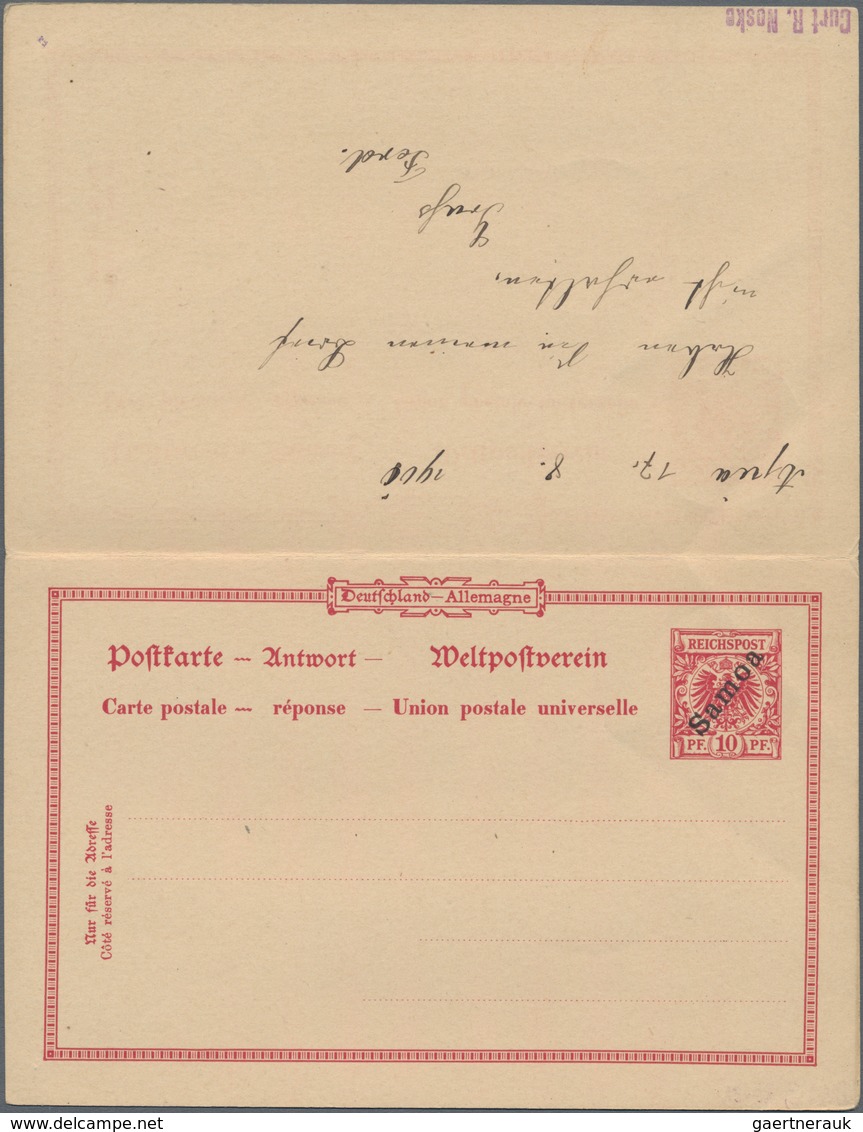 Curt R. Noske
Apia 17. 8. 1900
Haben Sie meinen Brief
nicht erhalten.
Gruß
Ferd.
Deutschland—Allemagne
Postkarte — Antwort — Weltpostverein
Carte postale — réponse — Union postale universelle
REICHSPOST
Samoa
PF. 10 PF.
Nur für die Adresse
Côté réservé à l'adresse
gaertnerauk